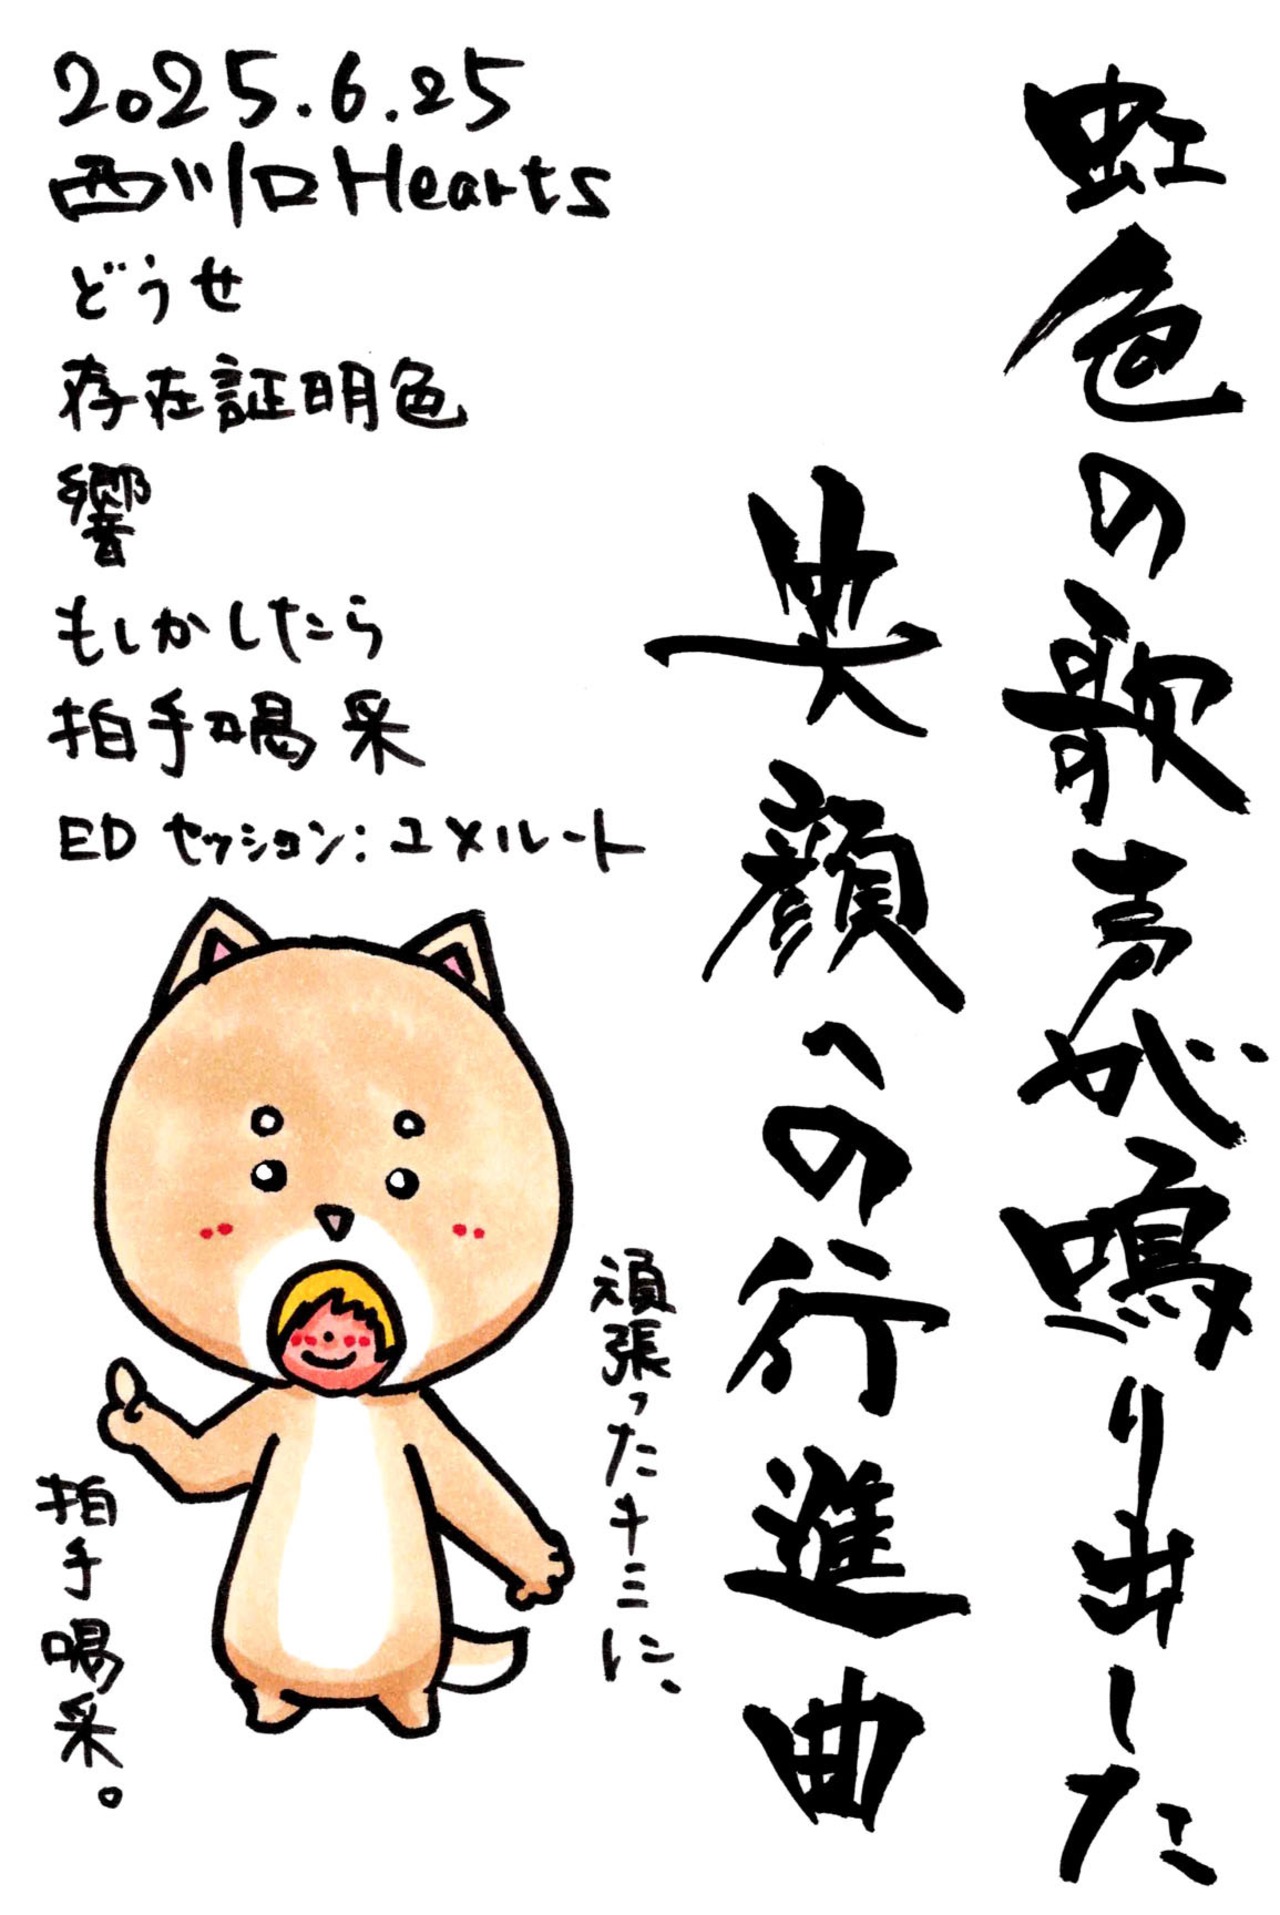 2025.6.25
西川口Hearts
どうせ
存在証明色
響
もしかしたら
拍手喝采
EDセッション:ユメルート
虹色の歌声が鳴り出した
笑顔への行進曲
頑張ったキミに、
拍手喝采。